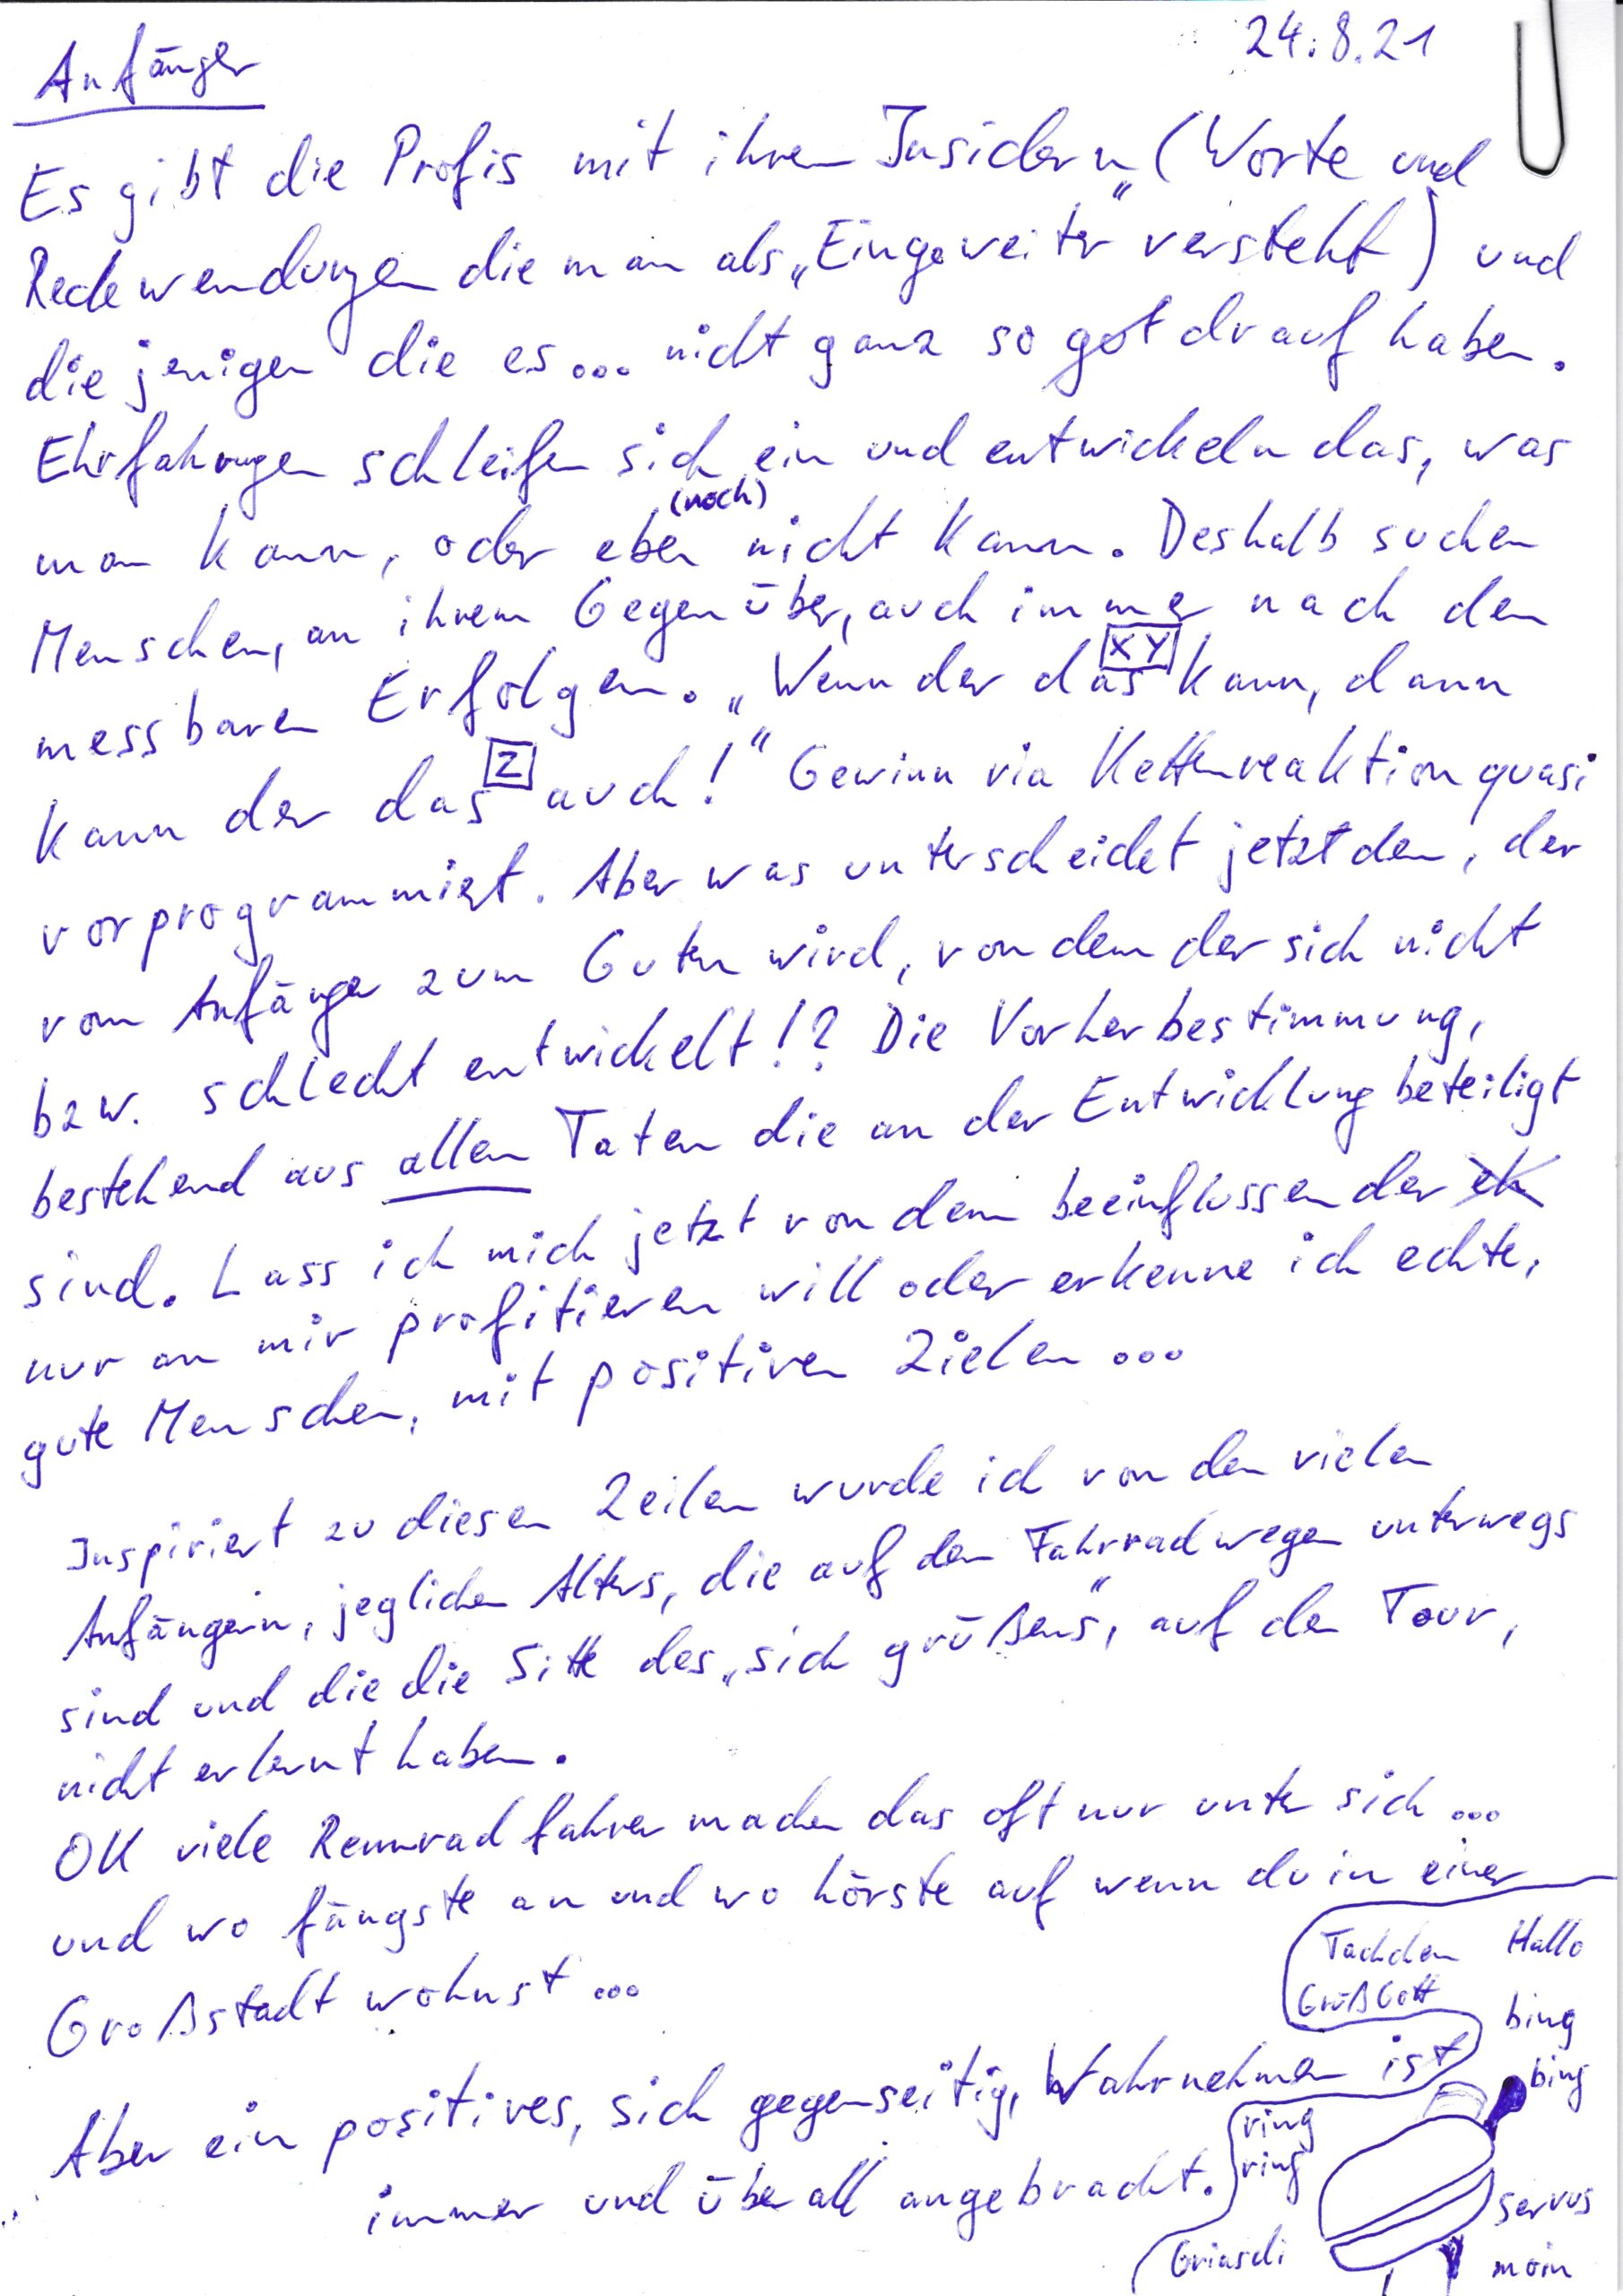 24.8.21
Anfänger
Es gibt die Profis mit ihren Insidern (Worte und
Redewendungen die man als „Eingeweiter" versteht) und
die jenigen die es... nicht ganz so gut drauf haben.
Ehrfahrungen schleifen sich ein und entwickeln das, was
(noch)
man kann, oder eben nicht kann. Deshalb suchen
Menschen, an ihrem Gegenüber, auch immer nach den
XY
messbaren Erfolgen. „Wenn der das kann, dann
Z
kann der das auch!" Gewinn via Kettenreaktion quasi
vorprogrammiert. Aber was unterscheidet jetzt den, der
vom Anfänger zum Guten wird, von dem der sich nicht
bzw. schlecht entwickelt!? Die Vorherbestimmung,
bestehend aus allen Taten die an der Entwicklung beteiligt
sind. Lass ich mich jetzt von dem beeinflussen der
nur an mir profitieren will oder erkenne ich echte,
gute Menschen, mit positiven Zielen...
Inspiriert zu diesen Zeilen wurde ich von den vielen
Anfängern, jeglichen Alters, die auf den Fahrradwegen unterwegs
sind und die die Sitte des „sich grüßens", auf der Tour,
nicht erlernt haben.
OK viele Rennradfahrer machen das oft nur unter sich...
und wo fängste an und wo hörste auf wenn du in einer
Großstadt wohnst...
Tachchen Hallo
Grüß Gott
bing
bing
Aber ein positives, sich gegenseitig, Wahrnehmen ist
ring
ring
immer und überall angebracht.
servus
Griasdi
moin